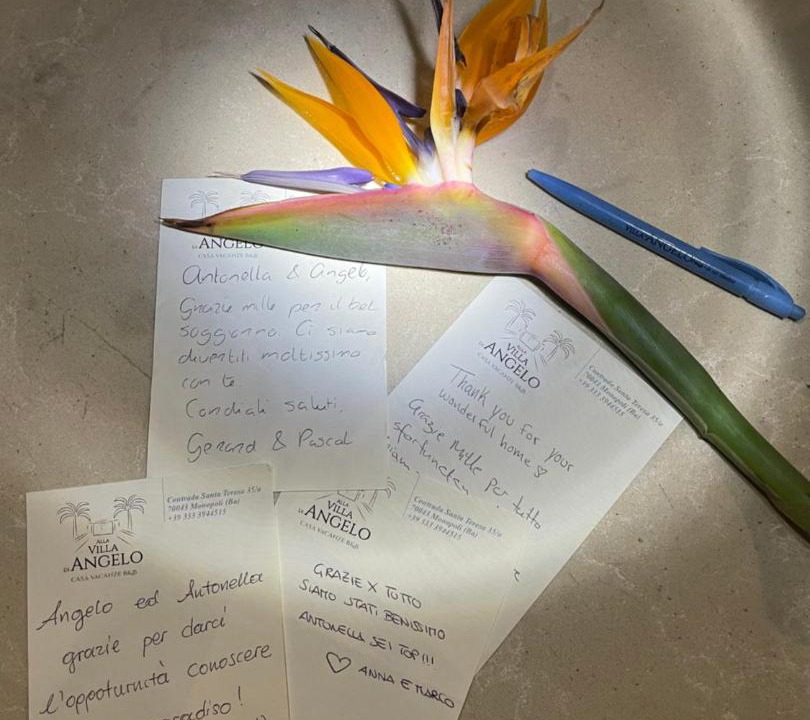 DI ANGELO
CASA VACANZE B&B
Antonella & Angelo,
Grazie mille per il bel
soggiorno. Ci siamo
divertiti moltissimo
con te.
Cordiali saluti,
Gerard & Pascal
ALLA
VILLA
DI ANGELO
CASA VACANZE B&B
Contrada Santa Teresa 35/a
70043 Monopoli (Ba)
+39 333 3944515
Thank you for your
wonderful home ♡
Grazie Mille Per tutto
VILLA ANGELO
ALLA
VILLA
DI ANGELO
CASA VACANZE B&B
Contrada Santa Teresa 35/a
70043 Monopoli (Ba)
+39 333 3944515
Angelo ed Antonella
grazie per darci
l'oppoturnità conoscere
VILLA
DI ANGELO
CASA VACANZE B&B
Contrada Santa Teresa 35/a
70043 Monopoli (Ba)
+39 333 3944515
GRAZIE X TUTTO
SIAMO STATI BENISSIMO
ANTONELLA SEI TOP!!!
♡ ANNA E MARCO